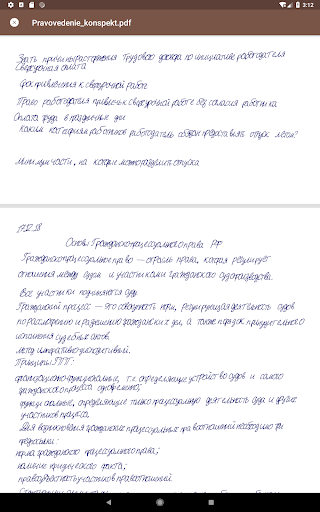 3:12
Pravovedenie_konspekt.pdf
Знать причины расторжения трудового договора по инициативе работодателя
Сверхурочная оплата
Срок привлечения к сверхурочной работе
Право работодателя привлечь к сверхурочной работе без согласия работника
Оплата труда в праздничные дни
Каким категориям работников работодатель обязан предоставить отпуск летом?
на которые можно разделить отпуск
17.12.18
Основы Гражданского процессуального права РФ
Гражданское процессуальное право — отрасль права, которая регулирует
отношения между судом и участниками гражданского судопроизводства.
Все участники подчиняются суду
Гражданский процесс — это совокупность норм, регулирующая деятельность судов
по рассмотрению и разрешению гражданских дел, а также порядок принудительного
исполнения судебных актов.
метод императивно-диспозитивный.
Принципы ГПП:
т.е. определяющие устройство судов и самого
гражданского процесса одновременно;
функциональные, определяющие только процессуальную деятельность суда и других
участников процесса.
Для возникновения гражданских процессуальных правоотношений необходимо три
предпосылки:
норма гражданского процессуального права;
наличие юридического факта;
правосубъектность участников правоотношений.